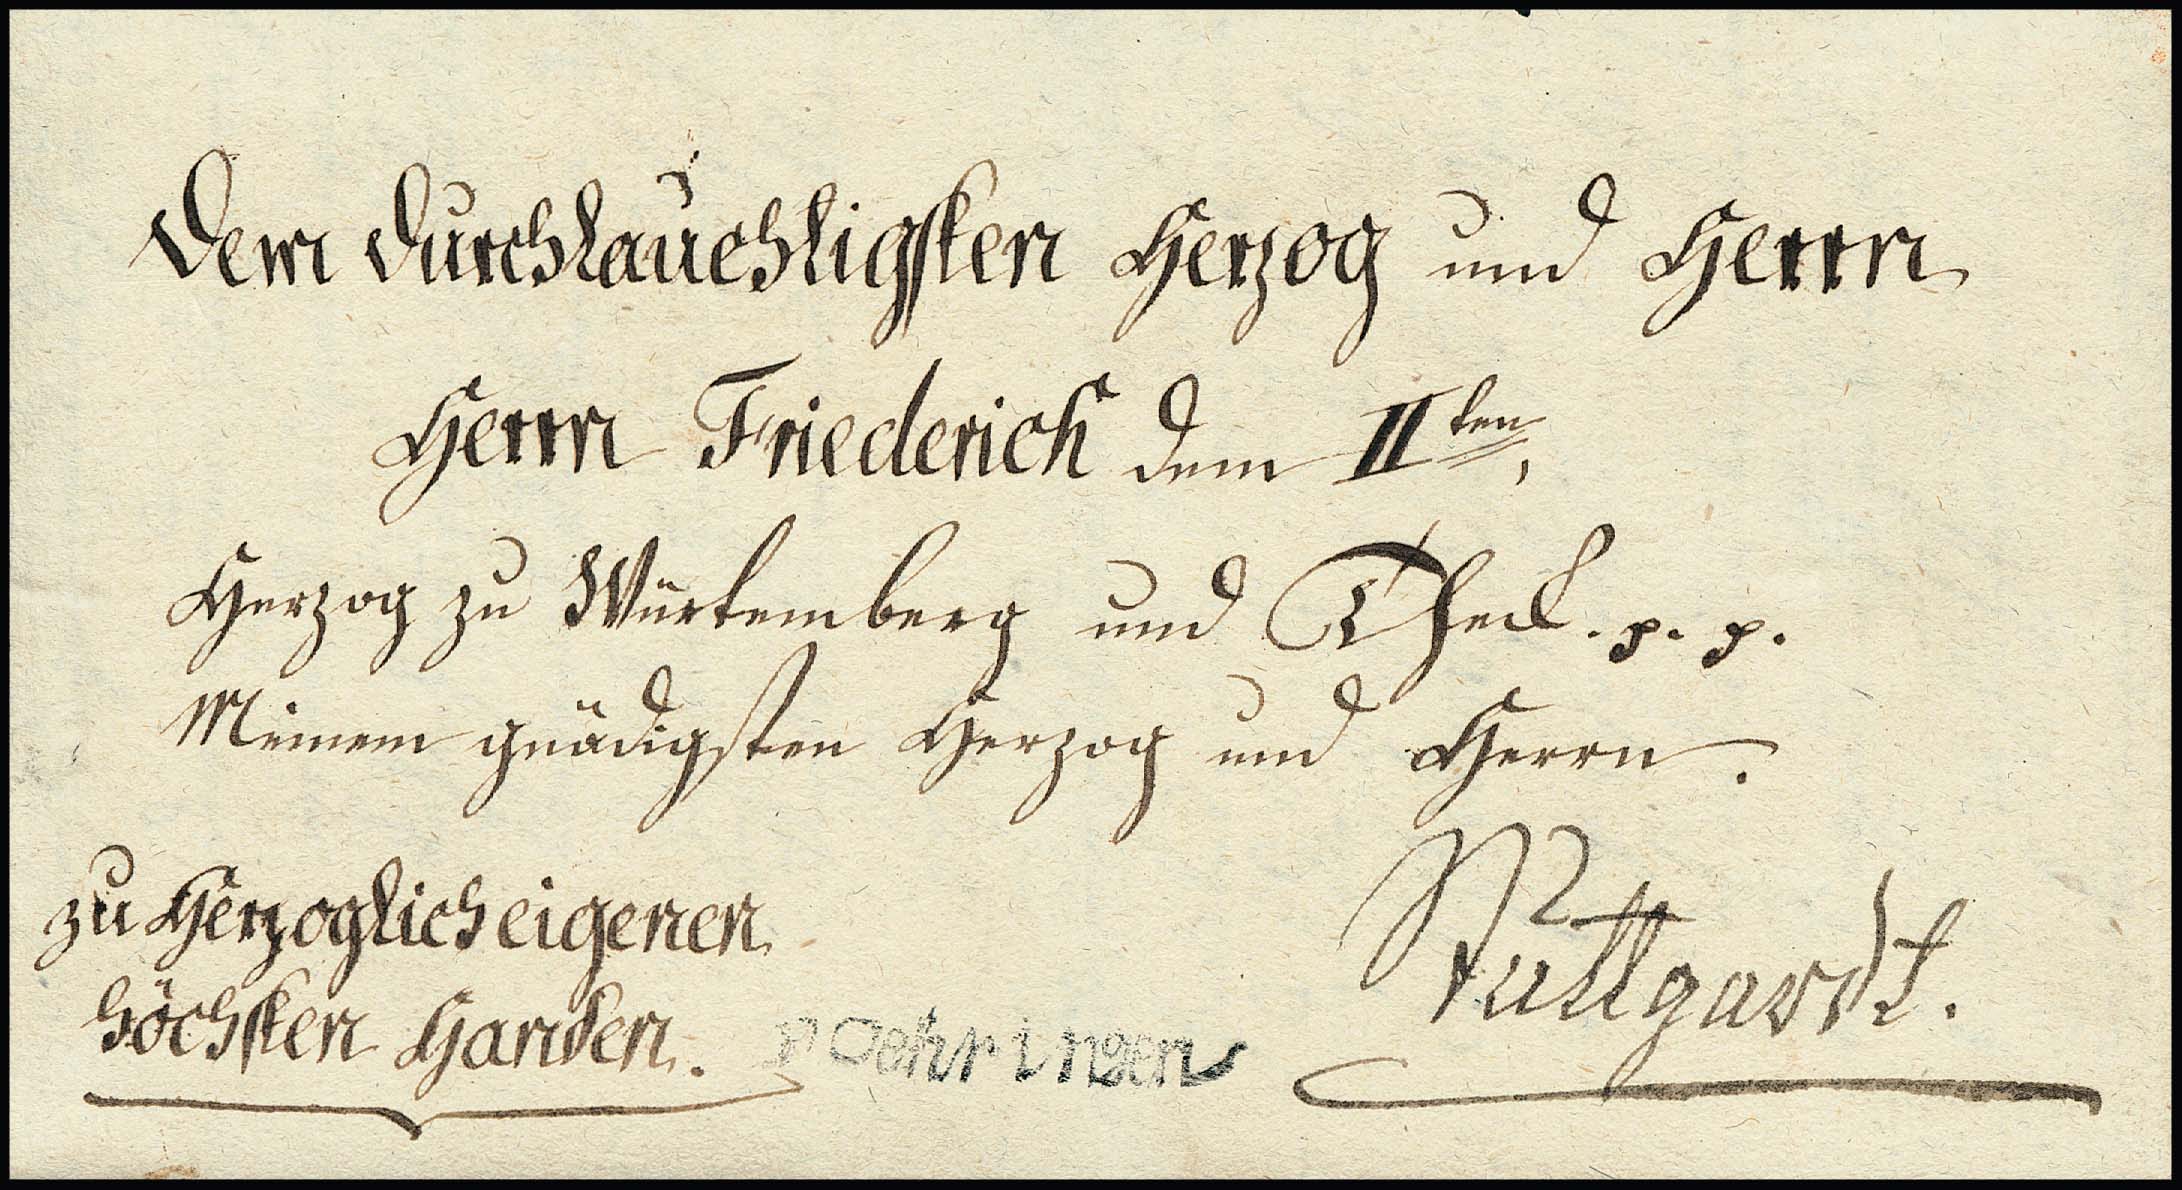 Dem durchlauchtigsten Herzog und Herrn
Herrn Friederich dem II ten,
Herzog zu Würtemberg und Theck. p. p.
Meinem gnädigsten Herzog und Herrn.
zu Herzoglich eigenen
höchsten Handen.
Stuttgardt.
Oehringen